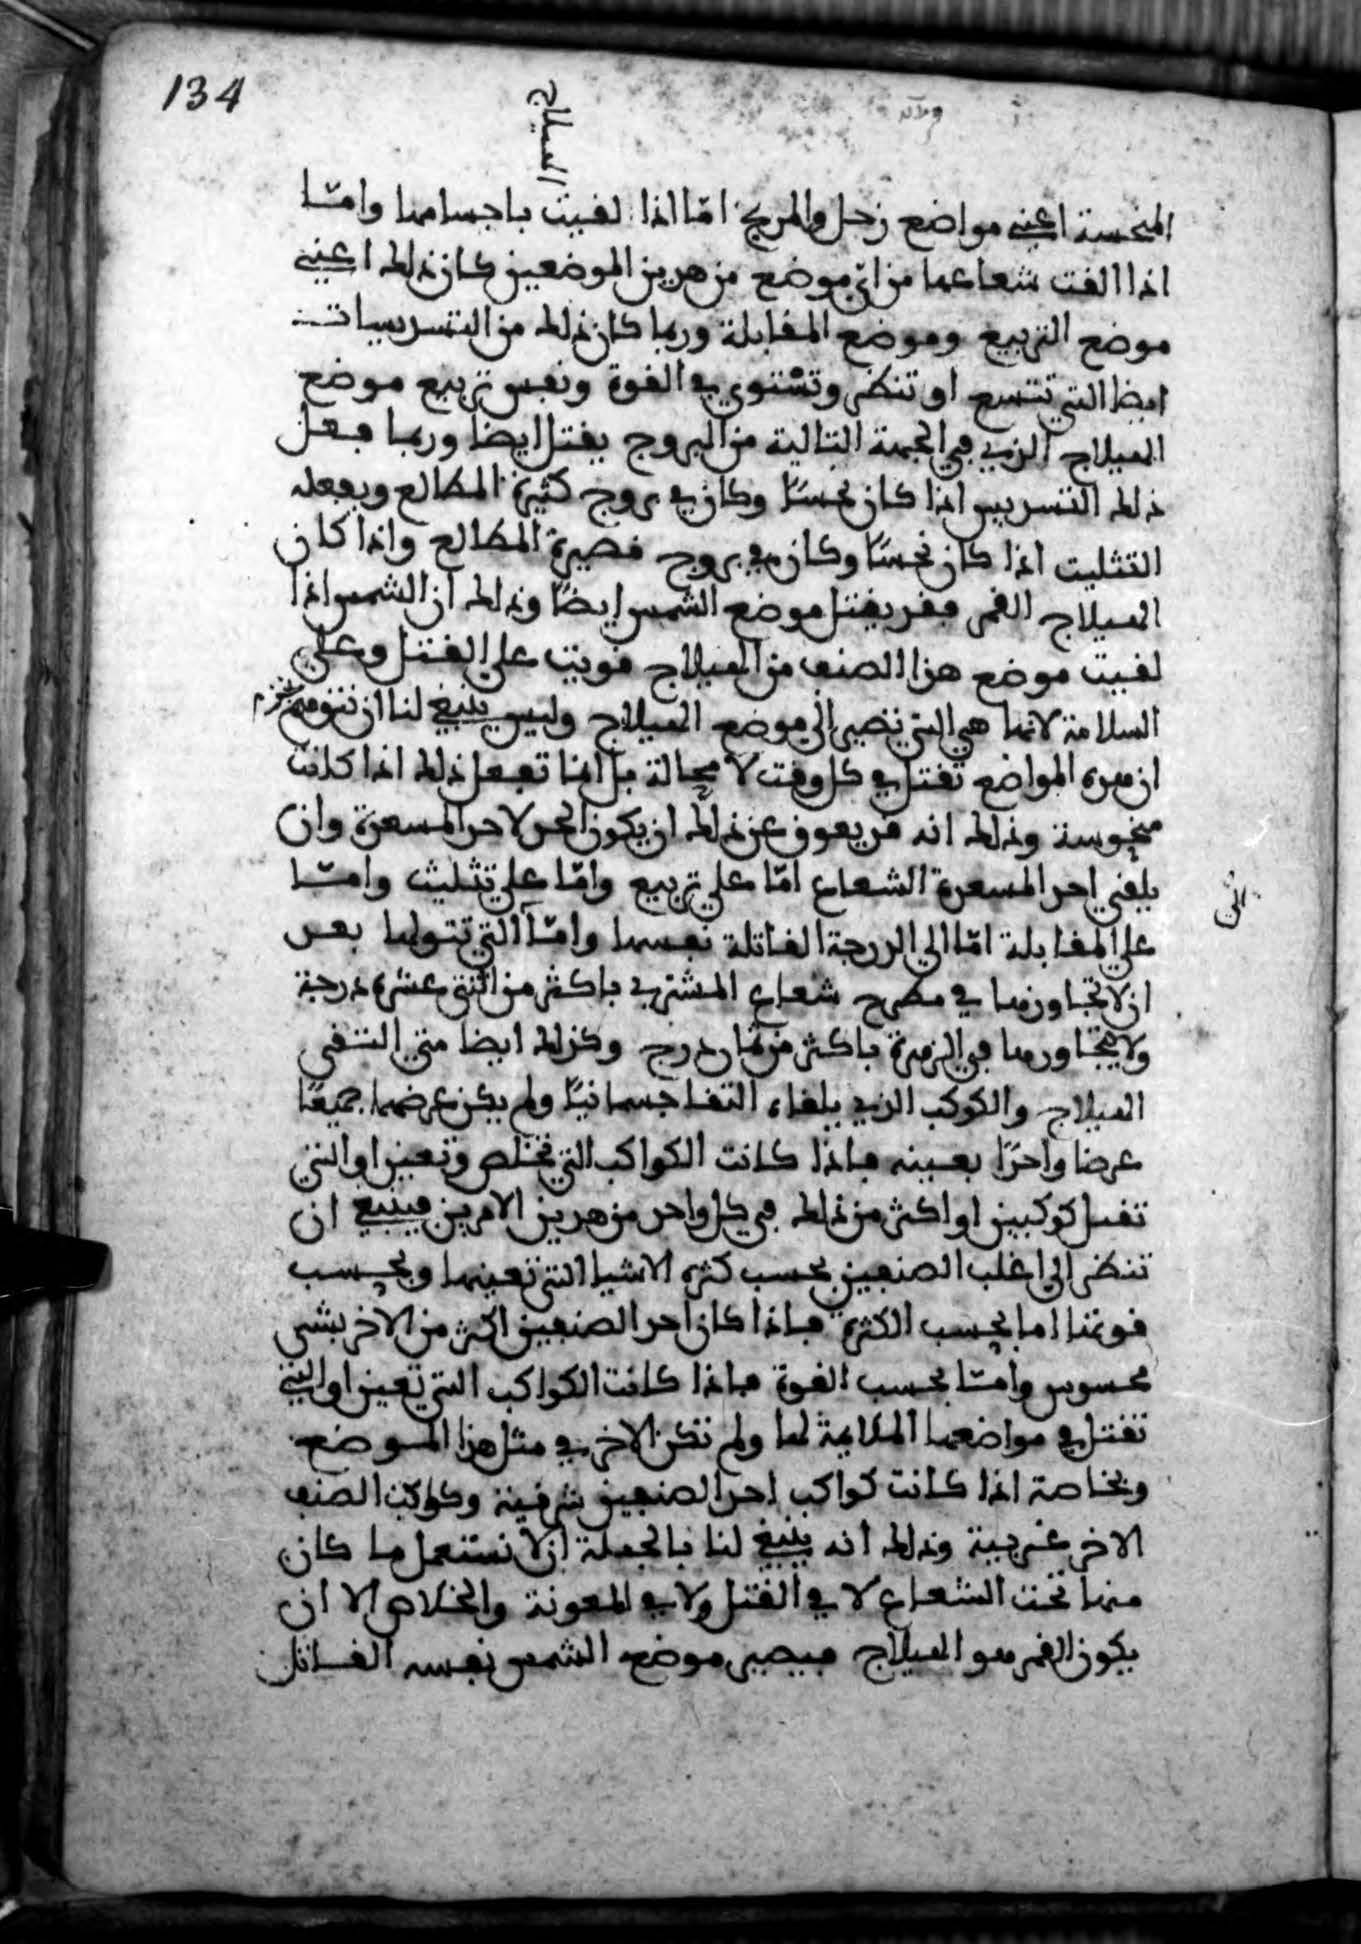 134
الهيلاج
المنحسة اعني مواضع زحل والمريخ امّا اذا لقيت باجسامها وامّا
اذا القت شعاعها من ايّ موضع من هذين الموضعين كان ذلك اعني
موضع التربيع وموضع المقابلة وربما كان ذلك من التسديسات
ايضا التي تتسع او تنظر وتستوي في القوة ونفس تربيع موضع
الهيلاج الذي في الجهة التالية من البروج يقتل ايضا وربما فعل
ذلك التسديس اذا كان نحسًا وكان في بروج كثيرة المطالع ويفعله
التثليث اذا كان نحسًا وكان في بروج قصيرة المطالع واذا كان
الهيلاج القمر فقد يقتل موضع الشمس ايضًا وذلك ان الشمس اذا
لقيت موضع هذا الصنف من الهيلاج قويت على القتل وعلى
السلامة لانها هي التي تصير الى موضع الهيلاج وليس ينبغي لنا ان نتوهم
ان هذه المواضع تقتل في كل وقت لا محالة بل انما تفعل ذلك اذا كانت
منحوسة وذلك انه قد يعوق عن ذلك ان يكون الحد لاحد المسعدة وان
يلقي احد المسعدة الشعاع امّا على تربيع وامّا على تثليث وامّا
على المقابلة امّا الى الدرجة القاتلة نفسها وامّا التي تتولها بعد
ان لا تجاوزها في مطرح شعاع المشتري باكثر من اثنتي عشرة درجة
ولا يتجاوزها في الزهرة باكثر من ثمان درج وكذلك ايضا متى التقى
الهيلاج والكوكب الذي يلقاه التقا جسمانيًا ولم يكن عرضهما جميعًا
عرضا واحدًا بعينه فاذا كانت الكواكب التي تخلص وتعين او التي
تقتل كوكبين او اكثر من ذلك في كل واحد من هذين الامرين فينبغي ان
تنظر الى اغلب الصنفين بحسب كثرة الاشيا التي تعينها وبحسب
قوتها اما بحسب الكثرة فاذا كان احد الصنفين اكثر من الاخر بشي
محسوس وامّا بحسب القوة فاذا كانت الكواكب التي تعين او التي
تقتل في مواضعها الملايمة لها ولم تكن الاخر في مثل هذا الموضع
وبخاصة اذا كانت كواكب احد الصنفين شرقية وكواكب الصنف
الاخر غربية وذلك انه ينبغي لنا بالجملة ان لا نستعمل ما كان
منها تحت الشعاع لا في القتل ولا في المعونة والخلاص الا ان
يكون القمر هو الهيلاج فيصير موضع الشمس نفسه القاتل